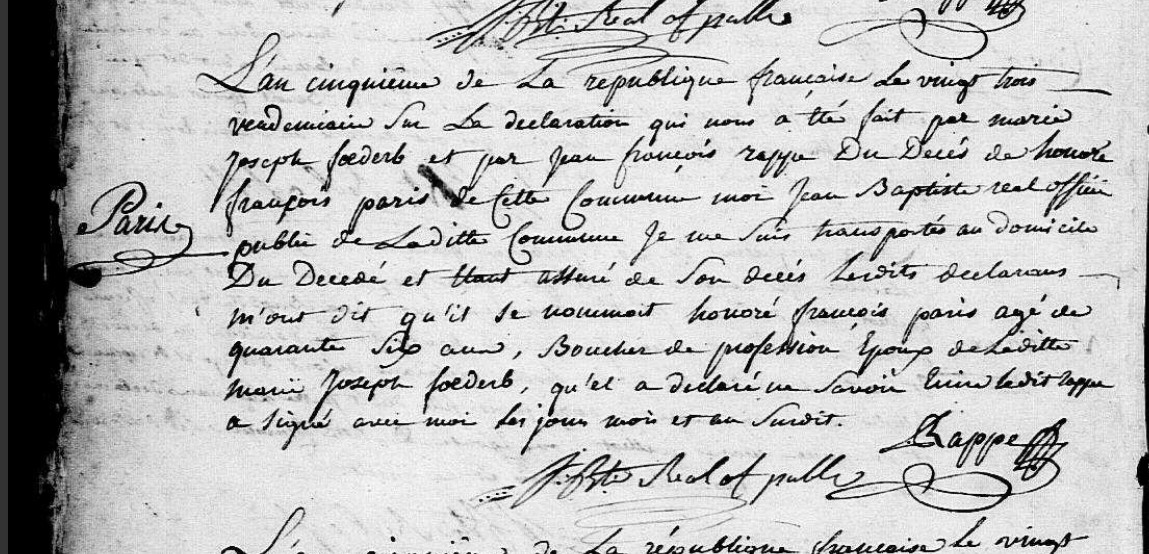 J Bte Real of public
L'an cinquième de La republique francaise Le vingt trois
vendemiaire Sur La declaration qui nous a été fait par marie
Joseph foederb et par Jean françois rappe Du Decés de honoré
françois paris de Cette Commune moi Jean Baptiste real officier
public de Laditte Commune Je me Suis transportés au domicile
Du Decedé et Etant assuré de Son decés Lesdits declarans
m'ont dit qu'il se nommoit honoré francois paris agé de
Paris
quarante Six ans, Boucher de profession Epoux de Laditte
marie Joseph foederb, qu'el a declaré ne Savoir Ecrire ledit rappe
a Signé avec moi Les jour mois et an Susdit.
Rappe
J Bte Real of public
L'an cinquième de La république francaise Le vingt